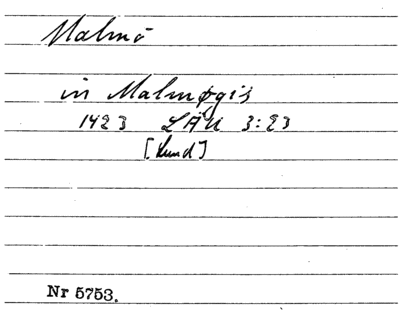 Malmö
in Malmøgis
1423 LÄU 3:23
[Lund]
Nr 5753.